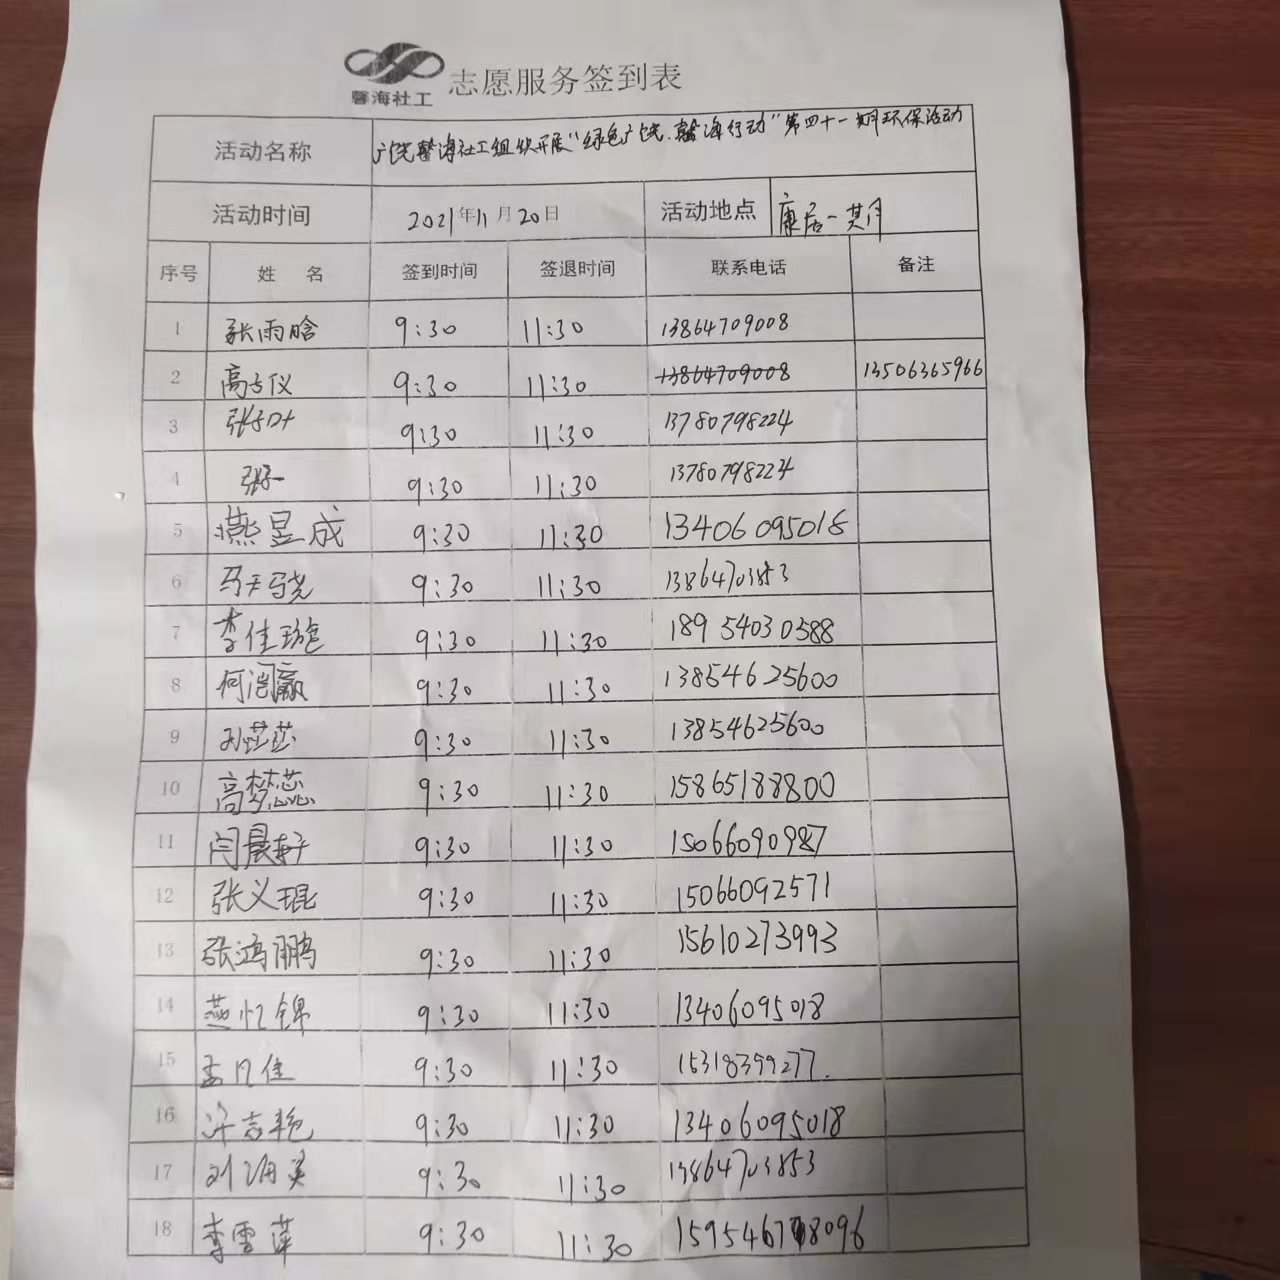 馨海社工
志愿服务签到表
活动名称 广饶馨海社工组织开展"绿色广饶.馨海行动"第四十一期环保活动
活动时间 2021年11月20日 活动地点 康居一期
序号 姓 名 签到时间 签退时间 联系电话 备注
1 张雨晗 9:30 11:30 13864709008
2 高艺仪 9:30 11:30 13864709008 13506365966
3 9:30 11:30 13780798224
4 张一 9:30 11:30 13780798224
5 燕昱成 9:30 11:30 13406095018
6 马天骁 9:30 11:30 13864703853
7 李佳璇 9:30 11:30 18954030588
8 何润赢 9:30 11:30 13854625600
9 孙莎莎 9:30 11:30 13854625600
10 高梦蕊 9:30 11:30 15865188800
11 闫晨轩 9:30 11:30 15066090987
12 张义琨 9:30 11:30 15066092571
13 张鸿鹏 9:30 11:30 15610273993
14 燕忆锦 9:30 11:30 13406095018
15 孟凡佳 9:30 11:30 15318399277.
16 许吉艳 9:30 11:30 13406095018
17 刘海美 9:30 11:30 13864703853
18 李雪萍 9:30 11:30